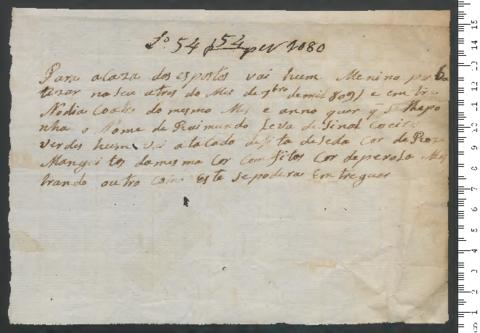 Lo. 54 54 per 1080
Para a caza dos espostos vai hum Menino por
nasceu a tres do Mes de 7bro de mil 809 e em
No dia do mesmo Mes e anno quer q se lhe po
nha o Nome de Raimundo Leva de Sinal
verdes hum vai atacado de fita de seda Cor de Roza
Manguitos da mesma Cor Com fitos Cor de perola Mos
trando outro Como Este se poderá Emtregar